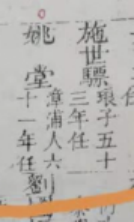 施世驃
琅子五十
三年任
姚堂
漳浦人六
十一年任
劉